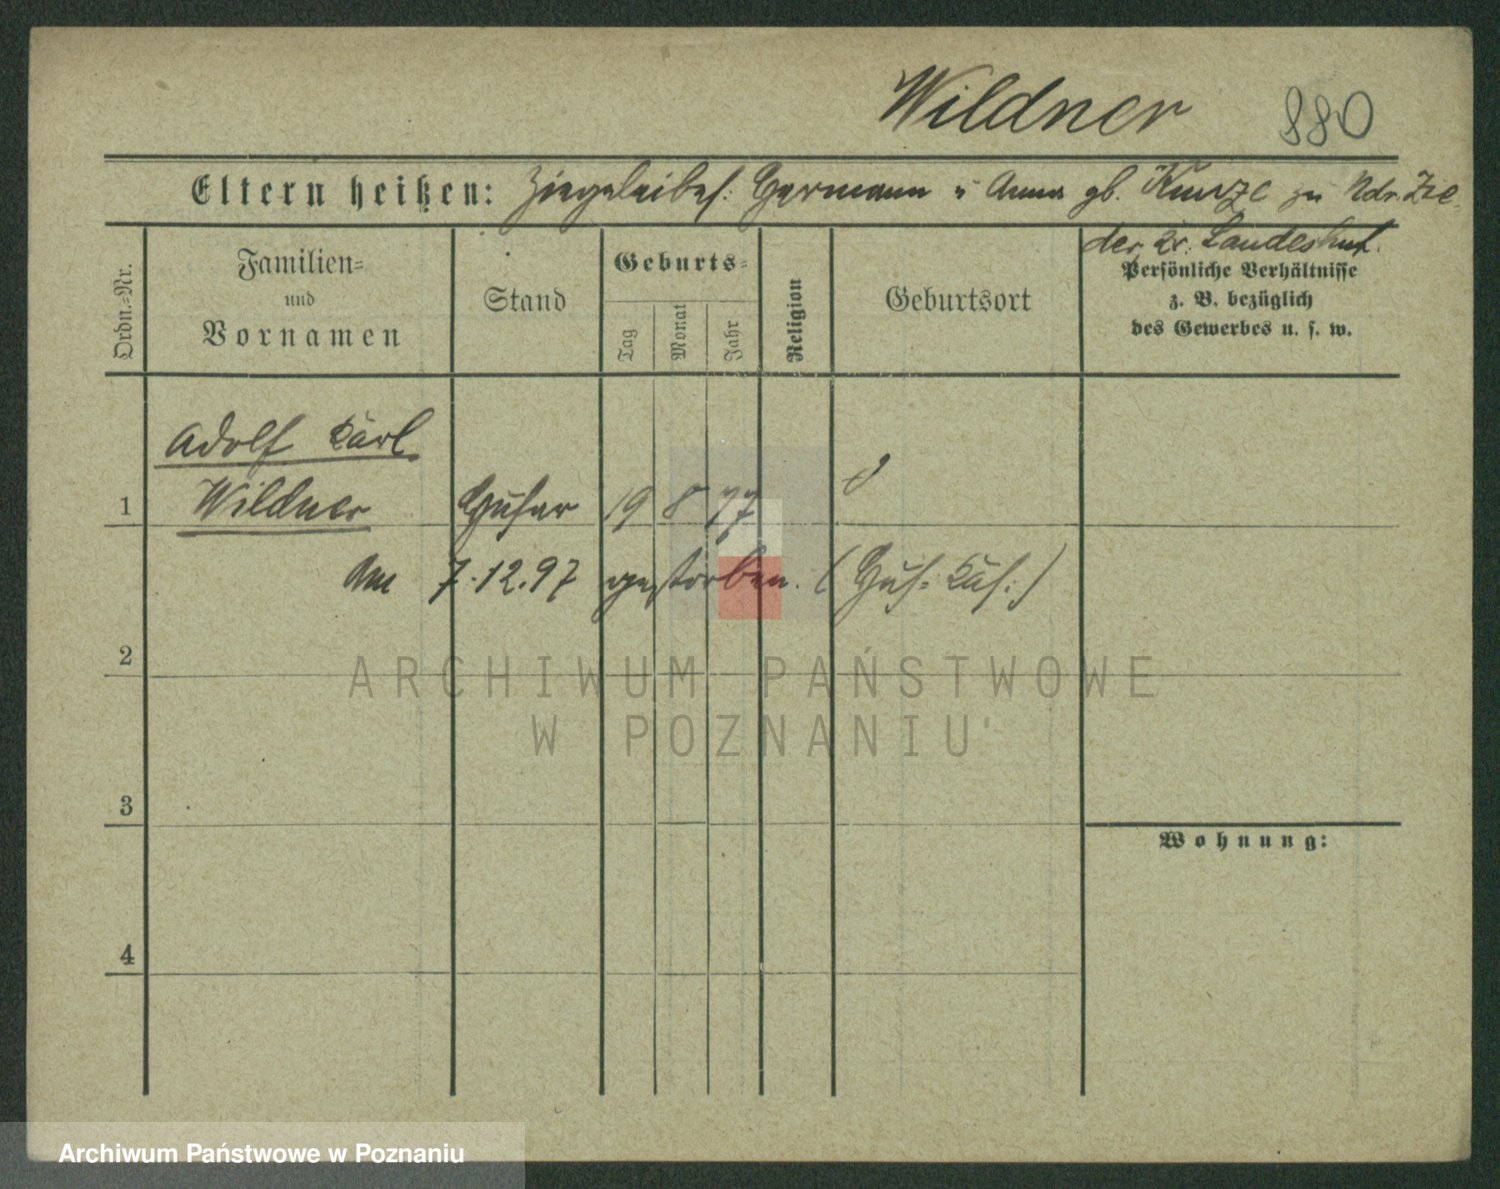 Wildner 880
Eltern heißen: Ziegeleibes. Hermann u Anna gb. Kunze zu Ndr. Zie
der, Kr. Landeshut.
Ordn.-Nr.
Familien-
und
Vornamen
Stand
Geburts-
Tag
Monat
Jahr
Religion
Geburtsort
Persönliche Verhältnisse
z. B. bezüglich
des Gewerbes u. s. w.
Adolf Karl
1 Wildner Husar 19 8 77
am 7.12.97 gestorben. (Hus. Kas.)
2
ARCHIWUM PAŃSTWOWE
W POZNANIU
3
Wohnung:
4
Archiwum Państwowe w Poznaniu